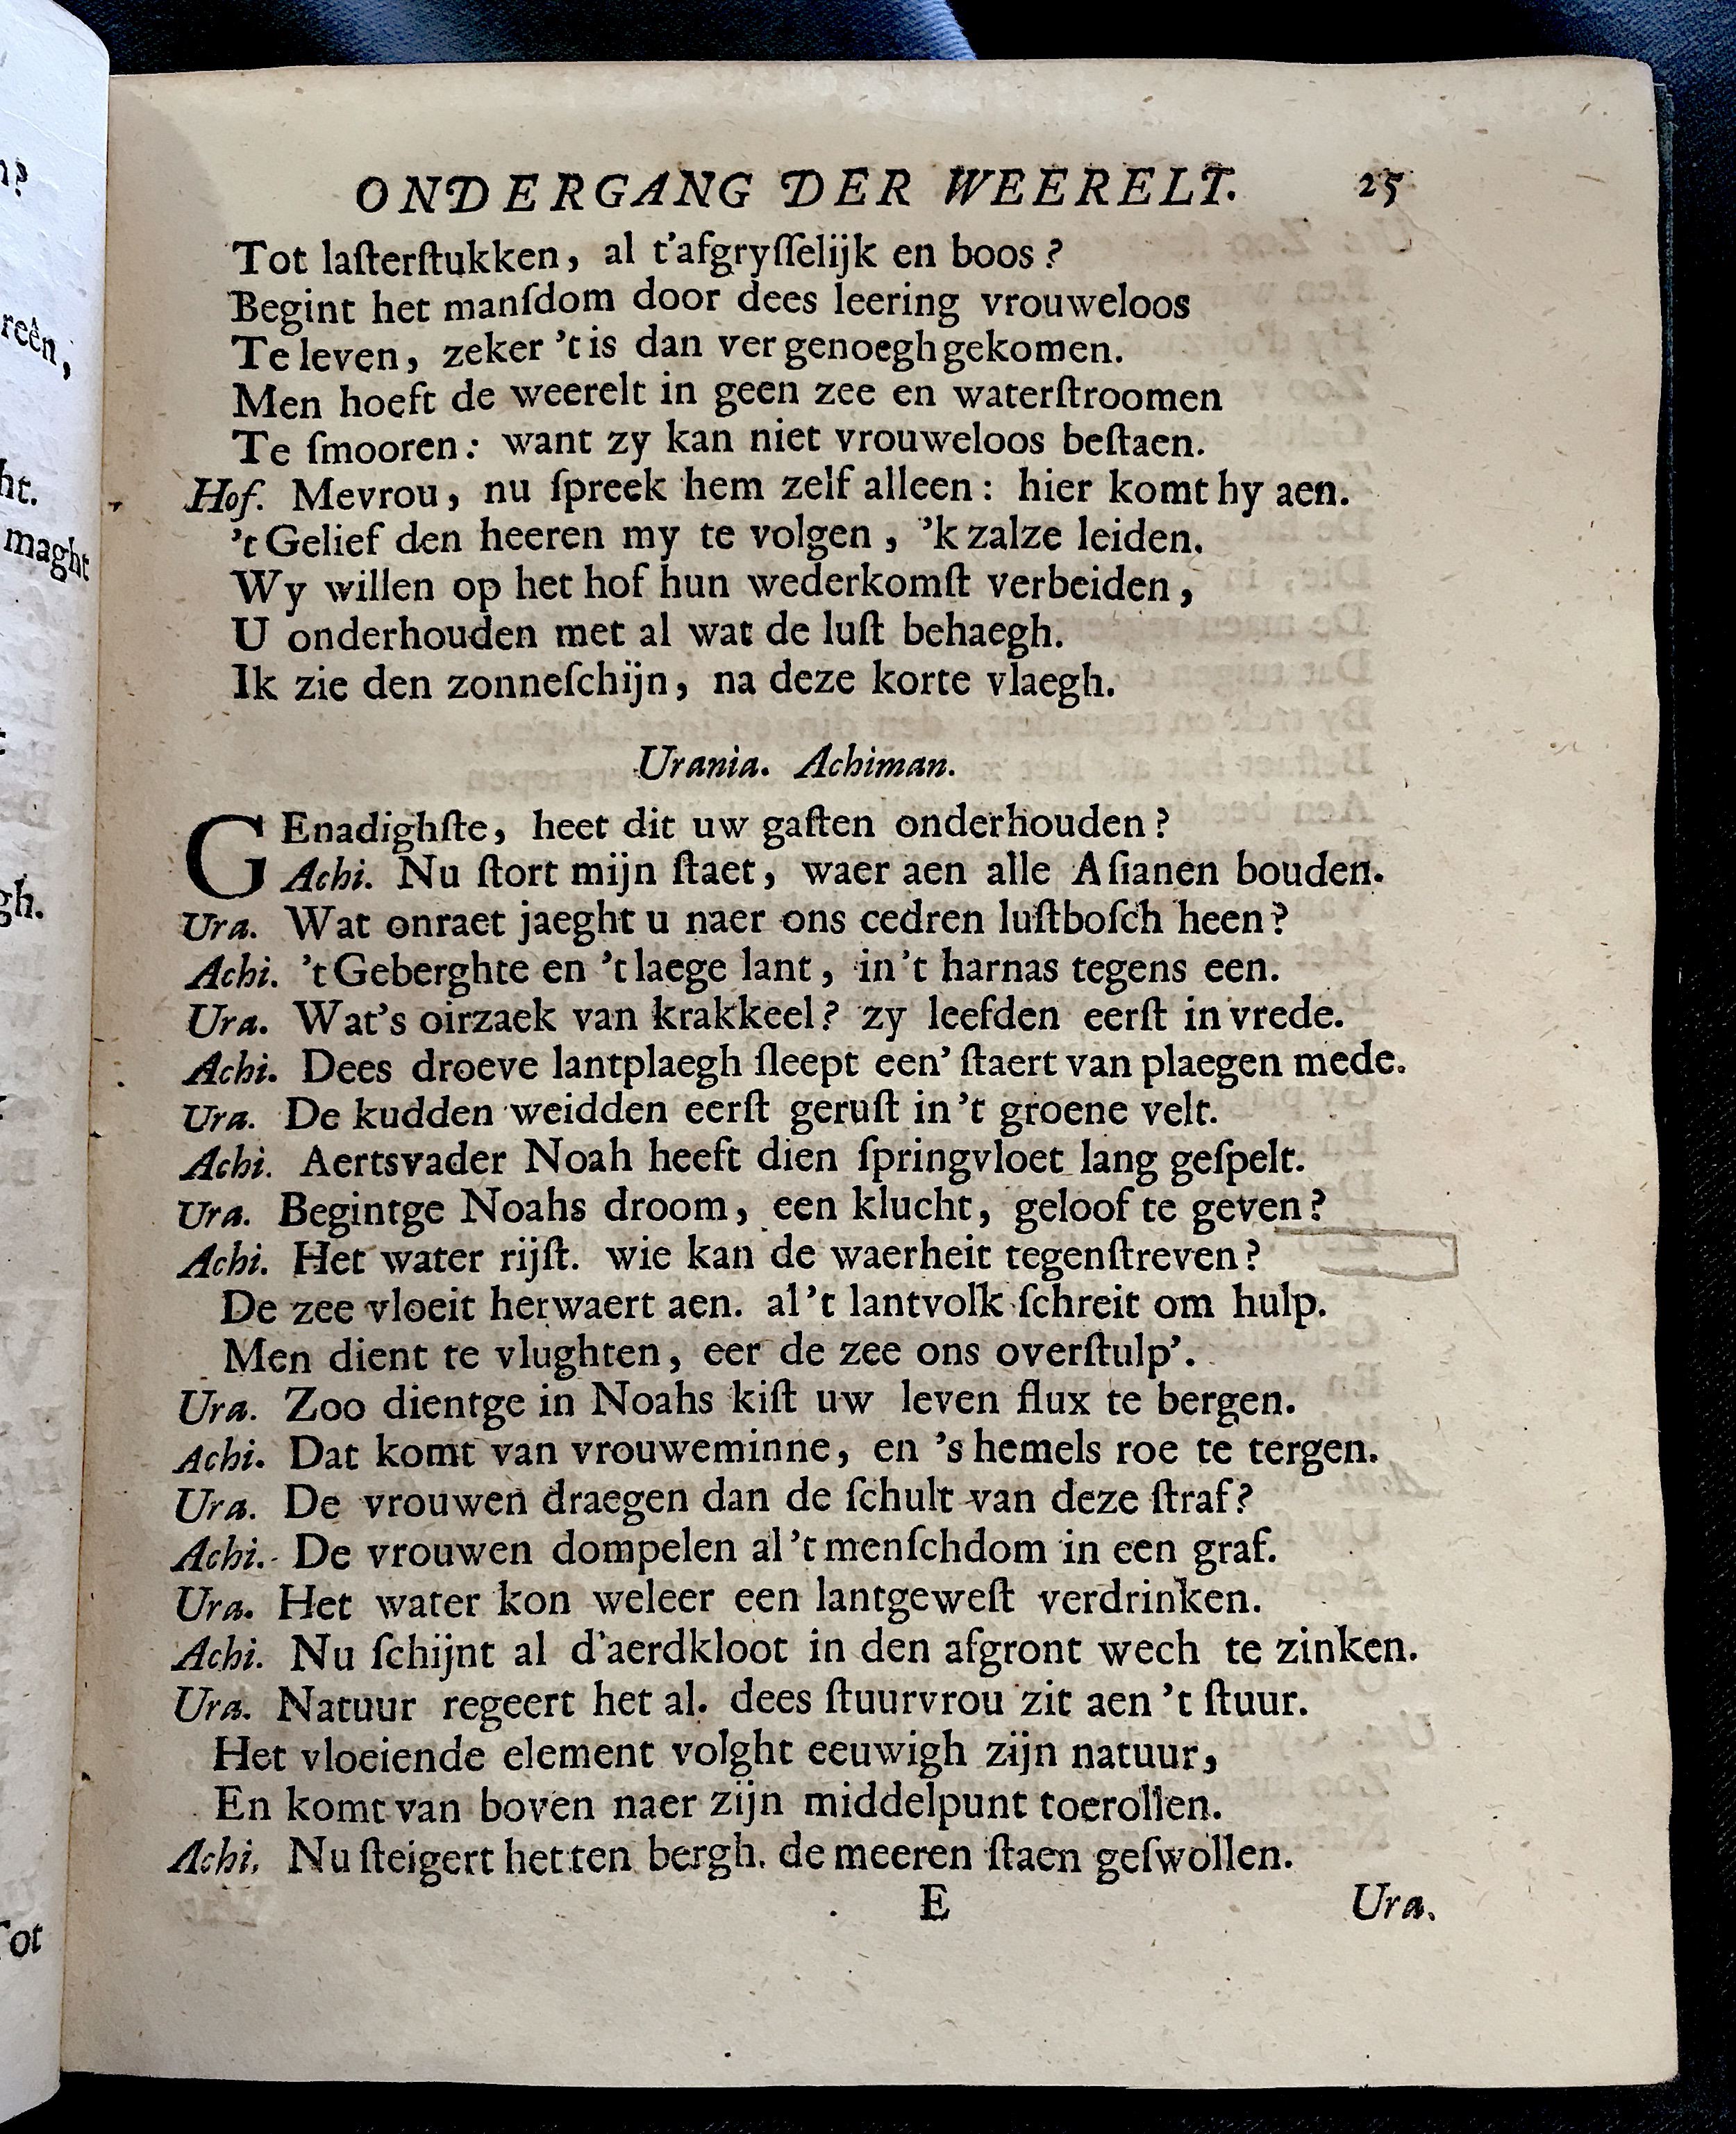 ONDERGANG DER WEERELT. 25
Tot laſterſtukken, al t'afgryſſelijk en boos?
Begint het manſdom door dees leering vrouweloos
Te leven, zeker 't is dan ver genoegh gekomen.
Men hoeft de weerelt in geen zee en waterſtroomen
Te ſmooren: want zy kan niet vrouweloos beſtaen.
Hof. Mevrou, nu ſpreek hem zelf alleen: hier komt hy aen.
't Gelief den heeren my te volgen, 'k zalze leiden.
Wy willen op het hof hun wederkomſt verbeiden,
U onderhouden met al wat de luſt behaegh.
Ik zie den zonneſchijn, na deze korte vlaegh.
Urania. Achiman.
GEnadighſte, heet dit uw gaſten onderhouden?
Achi. Nu ſtort mijn ſtaet, waer aen alle Aſianen bouden.
Ura. Wat onraet jaeght u naer ons cedren luſtboſch heen?
Achi. 't Geberghte en 't laege lant, in 't harnas tegens een.
Ura. Wat's oirzaek van krakkeel? zy leefden eerſt in vrede.
Achi. Dees droeve lantplaegh ſleept een' ſtaert van plaegen mede.
Ura. De kudden weidden eerſt geruſt in 't groene velt.
Achi. Aertsvader Noah heeft dien ſpringvloet lang geſpelt.
Ura. Begintge Noahs droom, een klucht, geloof te geven?
Achi. Het water rijſt. wie kan de waerheit tegenſtreven?
De zee vloeit herwaert aen. al 't lantvolk ſchreit om hulp.
Men dient te vlughten, eer de zee ons overſtulp'.
Ura. Zoo dientge in Noahs kiſt uw leven flux te bergen.
Achi. Dat komt van vrouweminne, en 's hemels roe te tergen.
Ura. De vrouwen draegen dan de ſchult van deze ſtraf?
Achi. De vrouwen dompelen al 't menſchdom in een graf.
Ura. Het water kon weleer een lantgeweſt verdrinken.
Achi. Nu ſchijnt al d'aerdkloot in den afgront wech te zinken.
Ura. Natuur regeert het al. dees ſtuurvrou zit aen 't ſtuur.
Het vloeiende element volght eeuwigh zijn natuur,
En komt van boven naer zijn middelpunt toerollen.
Achi. Nu ſteigert het ten bergh. de meeren ſtaen geſwollen.
E Ura.